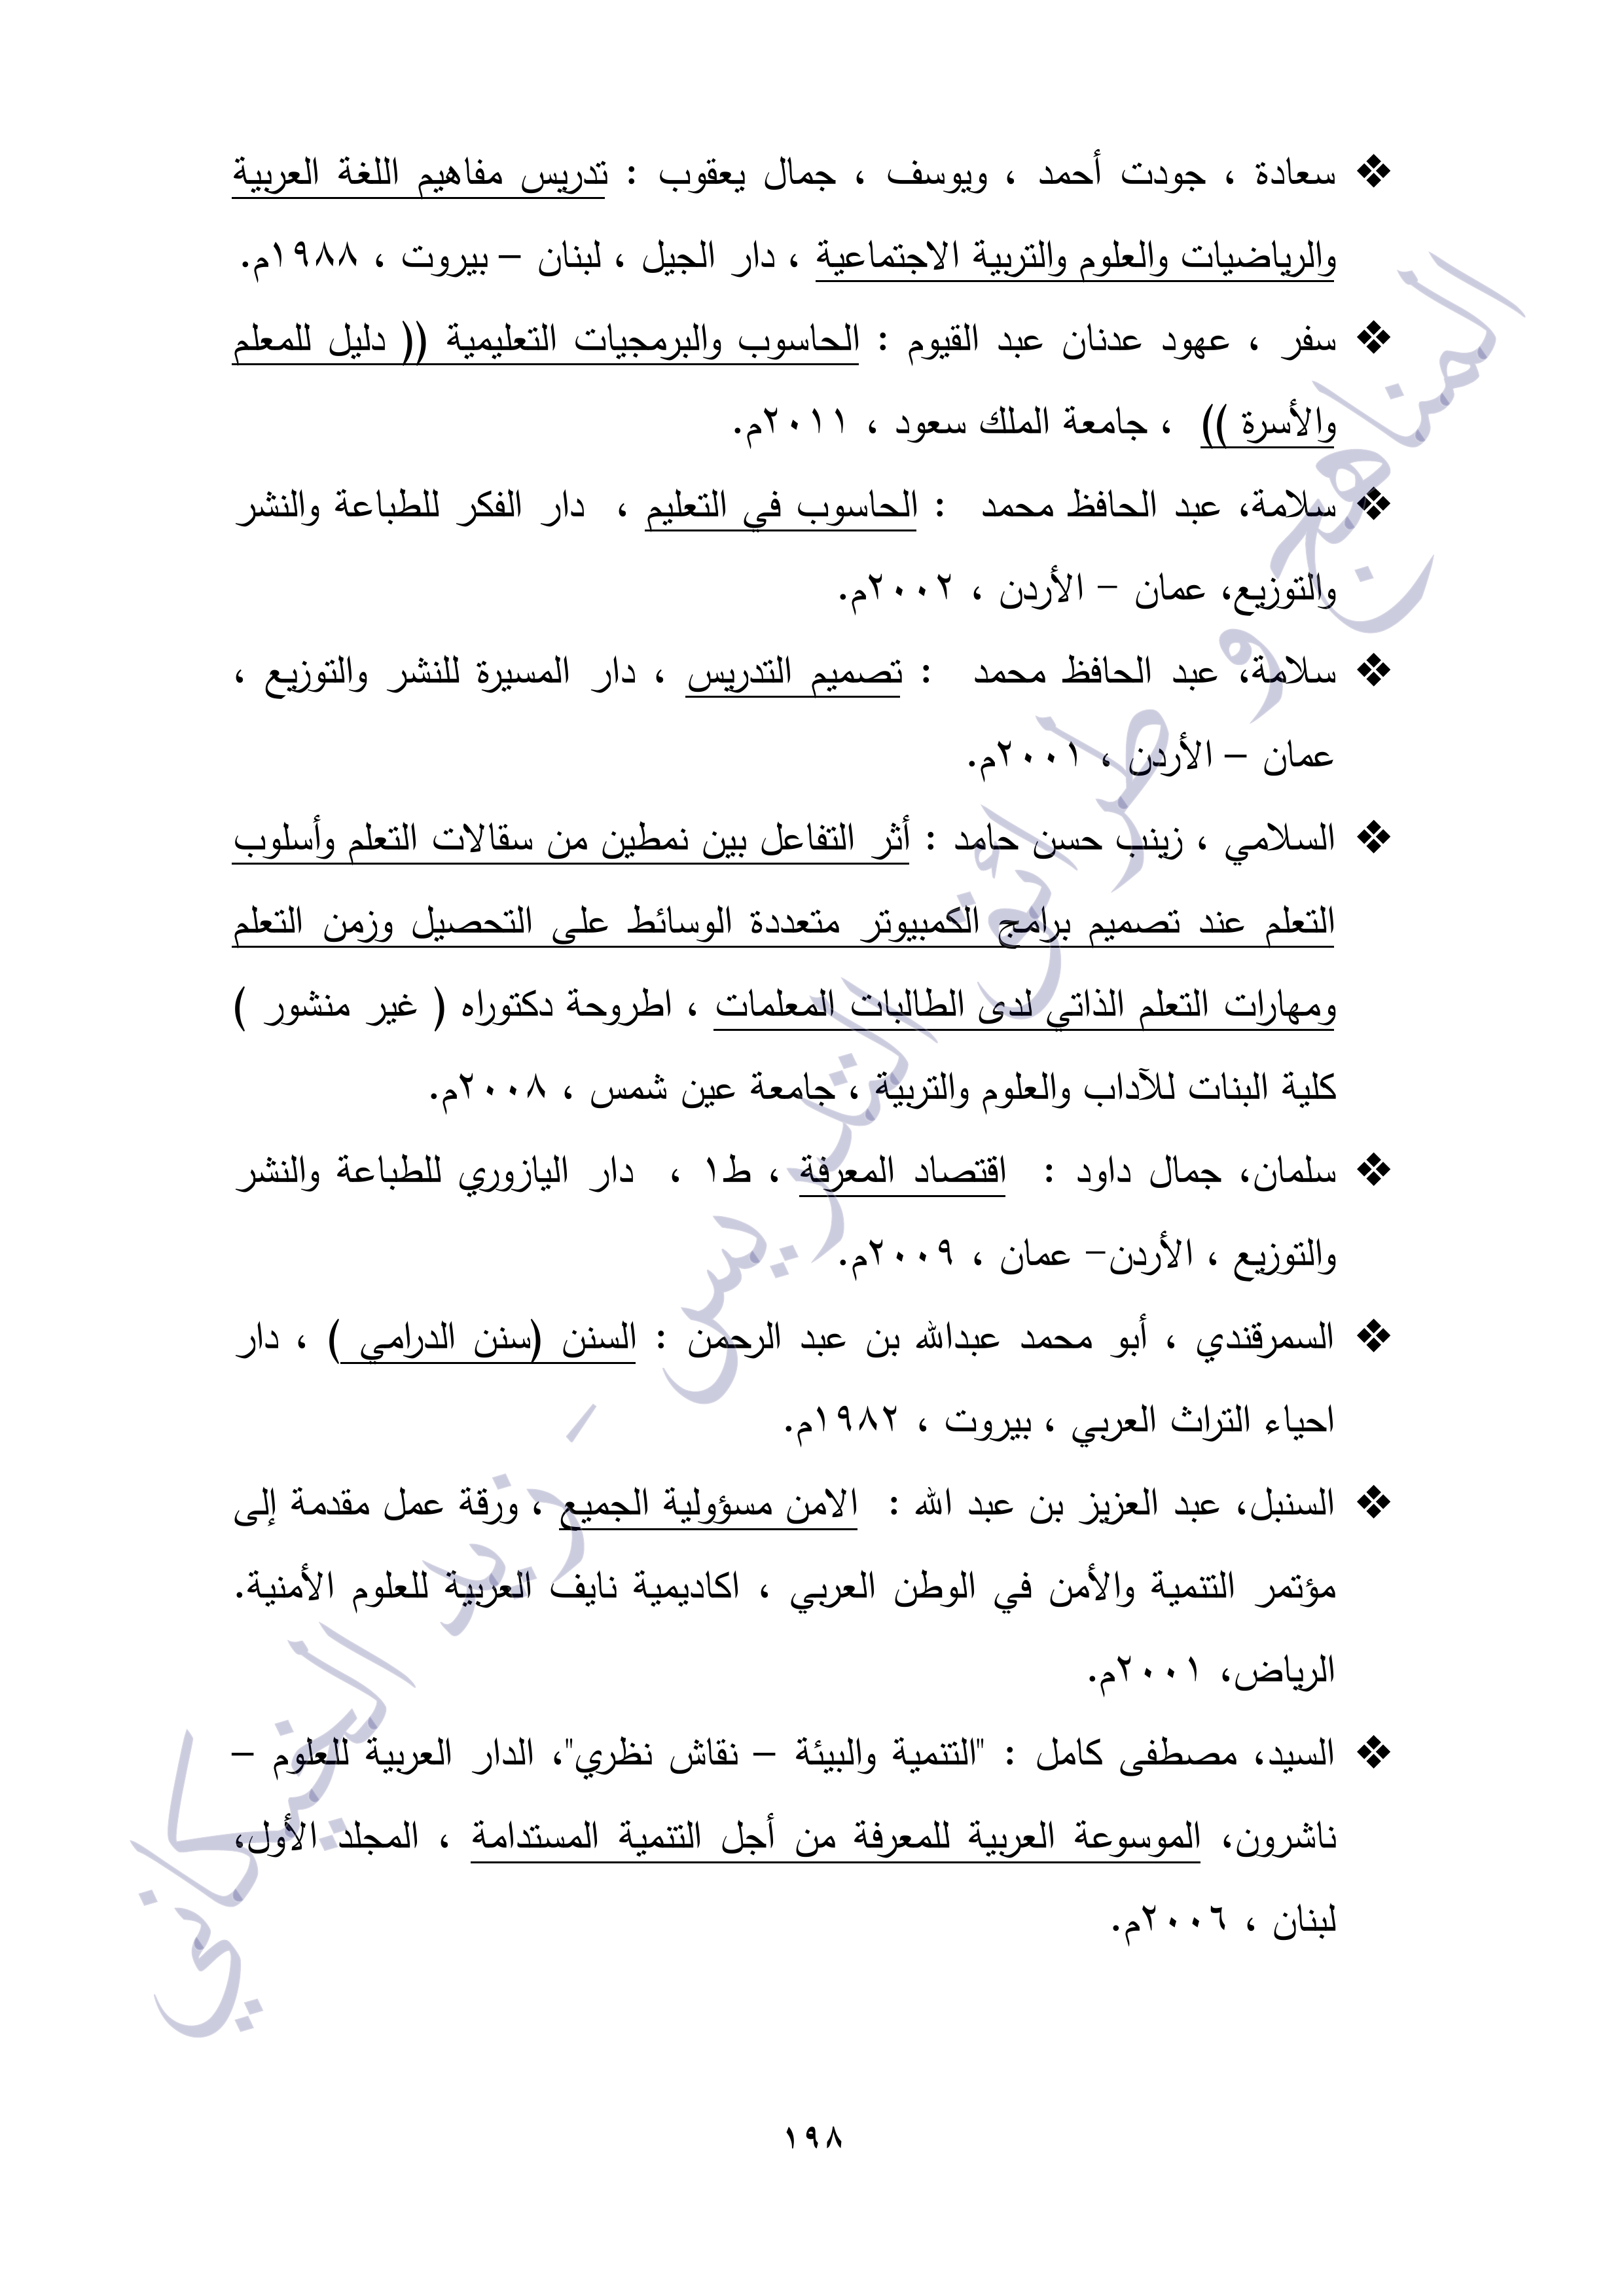 ❖ سعادة ، جودت أحمد ، ويوسف ، جمال يعقوب : تدريس مفاهيم اللغة العربية
والرياضيات والعلوم والتربية الاجتماعية ، دار الجيل ، لبنان – بيروت ، ١٩٨٨م.
❖ سفر ، عهود عدنان عبد القيوم : الحاسوب والبرمجيات التعليمية (( دليل للمعلم
والأسرة )) ، جامعة الملك سعود ، ٢٠١١م.
❖ سلامة، عبد الحافظ محمد : الحاسوب في التعليم ، دار الفكر للطباعة والنشر
والتوزيع، عمان – الأردن ، ٢٠٠٢م.
❖ سلامة، عبد الحافظ محمد : تصميم التدريس ، دار المسيرة للنشر والتوزيع ،
عمان – الأردن ، ٢٠٠١م.
❖ السلامي ، زينب حسن حامد : أثر التفاعل بين نمطين من سقالات التعلم وأسلوب
التعلم عند تصميم برامج الكمبيوتر متعددة الوسائط على التحصيل وزمن التعلم
ومهارات التعلم الذاتي لدى الطالبات المعلمات ، اطروحة دكتوراه ( غير منشور )
كلية البنات للآداب والعلوم والتربية ، جامعة عين شمس ، ٢٠٠٨م.
❖ سلمان، جمال داود : اقتصاد المعرفة ، ط١ ، دار اليازوري للطباعة والنشر
والتوزيع ، الأردن– عمان ، ٢٠٠٩م.
❖ السمرقندي ، أبو محمد عبدالله بن عبد الرحمن : السنن (سنن الدرامي ) ، دار
احياء التراث العربي ، بيروت ، ١٩٨٢م.
❖ السنبل، عبد العزيز بن عبد الله : الامن مسؤولية الجميع ، ورقة عمل مقدمة إلى
مؤتمر التنمية والأمن في الوطن العربي ، اكاديمية نايف العربية للعلوم الأمنية.
الرياض، ٢٠٠١م.
❖ السيد، مصطفى كامل : "التنمية والبيئة – نقاش نظري"، الدار العربية للعلوم –
ناشرون، الموسوعة العربية للمعرفة من أجل التنمية المستدامة ، المجلد الأول،
لبنان ، ٢٠٠٦م.
المناهج و طرائق التدريس - زيد الخيكاني
١٩٨